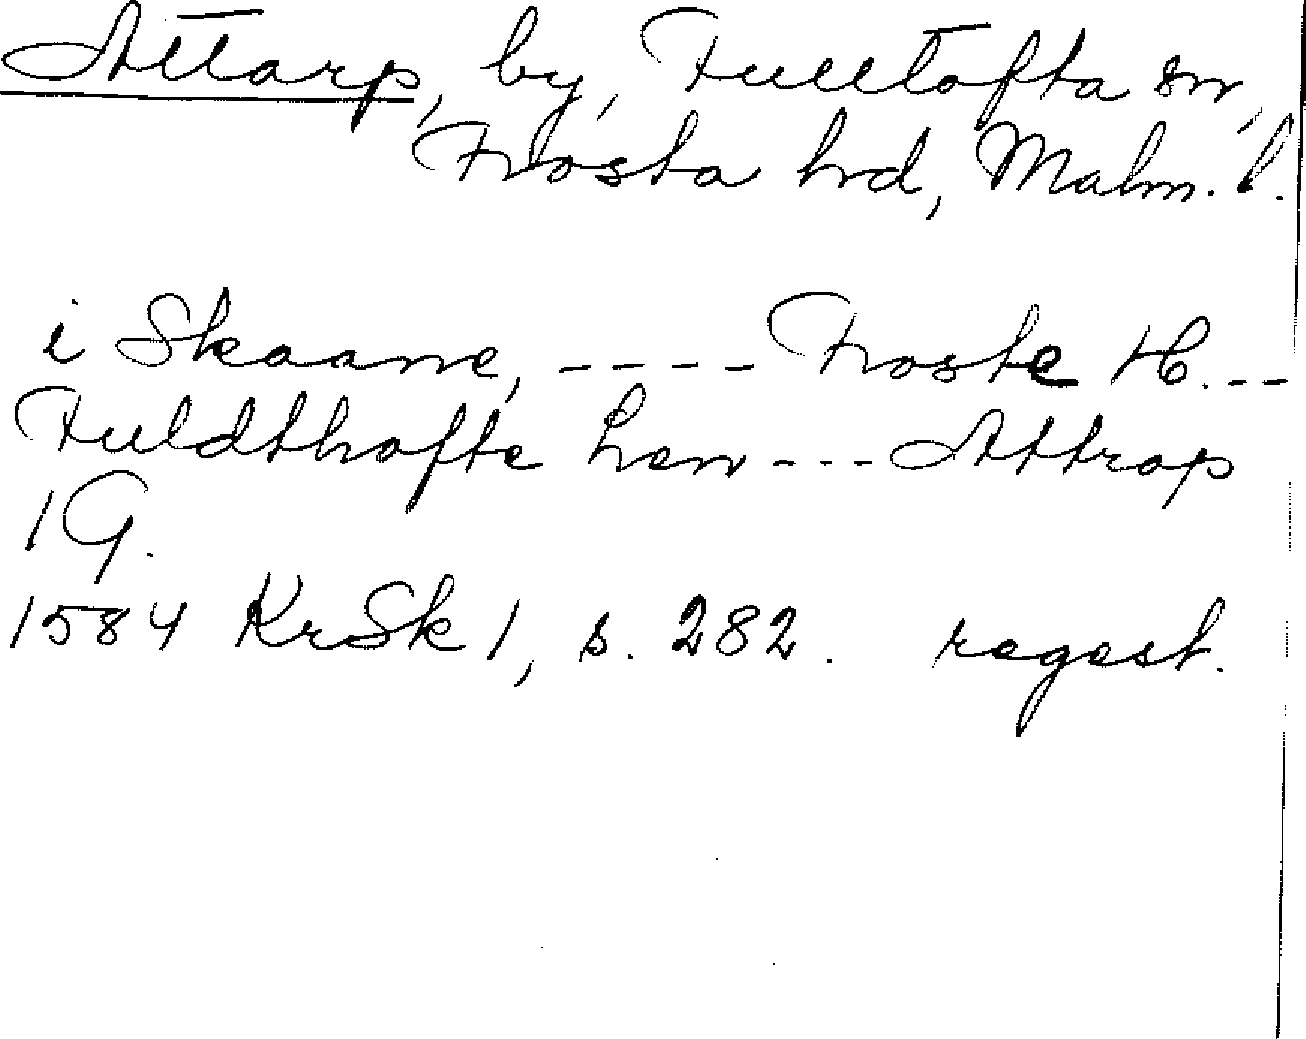 Attarp, by, Fulltofta sn,
Frosta hrd, Malm. l.
i Skaane, ---- Froste H. ---
Fuldthofte Len --- Attrap
1 G.
1584 KrSk 1, s. 282. regest.